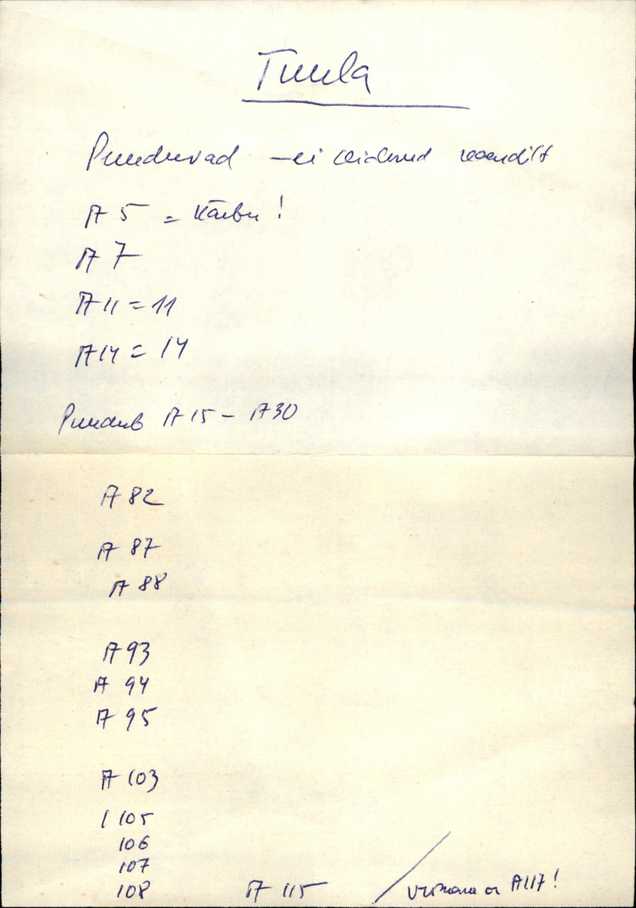 Tuula
Puuduvad - ei leidnud
A 5 = Kärbu!
A 7
A 11 = 11
A 14 = 14
Puudub A 15 - A 30
A 82
A 87
A 88
A 93
A 94
A 95
A 103
105
106
107
108 A 115 / A 117!